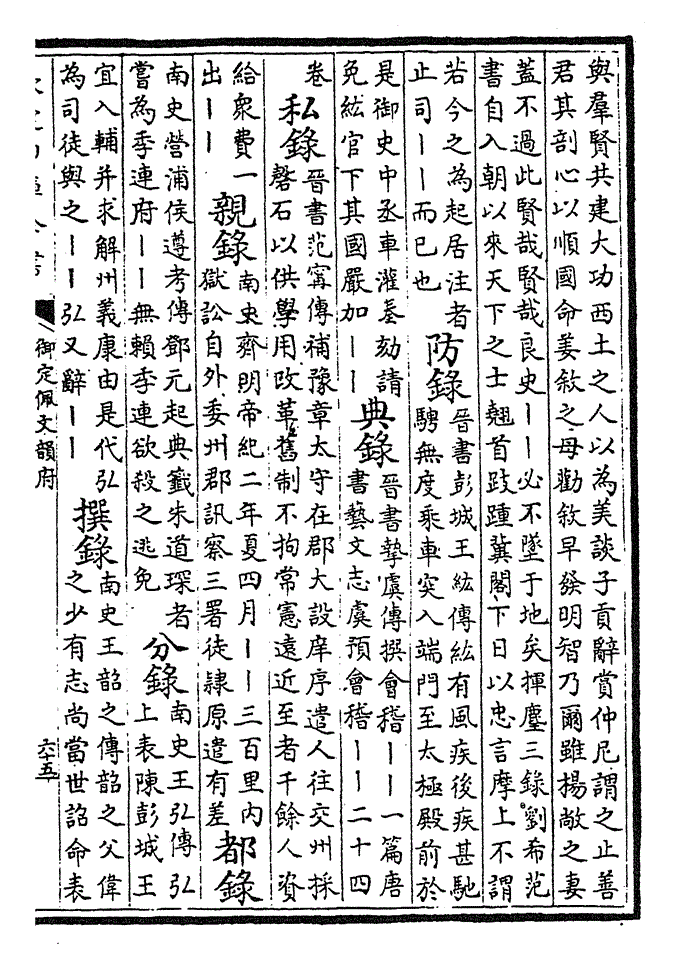 與羣賢共建大功西土之人以為美談子貢辭賞仲尼謂之止善
君其剖心以順國命姜敘之母勸敘早發明智乃爾雖楊敞之妻
蓋不過此賢哉賢哉良史一一必不墜于地矣揮麈三錄劉希范
書自入朝以來天下之士翹首跂踵冀閣下日以忠言摩上不謂
若今之為起居注者防錄晉書彭城王紘傳紘有風疾後疾甚馳
止司一一而已也騁無度乘車突入端門至太極殿前於
是御史中丞車灌奏劾請典錄晉書摯虞傳撰會稽一一一篇唐
免紘官下其國嚴加一一書藝文志虞預會稽一一二十四
卷私錄晉書范甯傳補豫章太守在郡大設庠序遣人往交州採
磬石以供學用改革舊制不拘常憲遠近至者千餘人資
給衆費一親錄南史齊明帝紀二年夏四月一一三百里內
出一一獄訟自外委州郡訊察三署徒隸原遣有差都錄
南史營浦侯遵考傳鄧元起典籤朱道琛者分錄南史王弘傳弘
嘗為季連府一一無賴季連欲殺之逃免上表陳彭城王
宜入輔并求解州義康由是代弘撰錄南史王韶之傳韶之父偉
為司徒與之一一弘又辭一一之少有志尚當世詔命表
御定佩文韻府
六十五